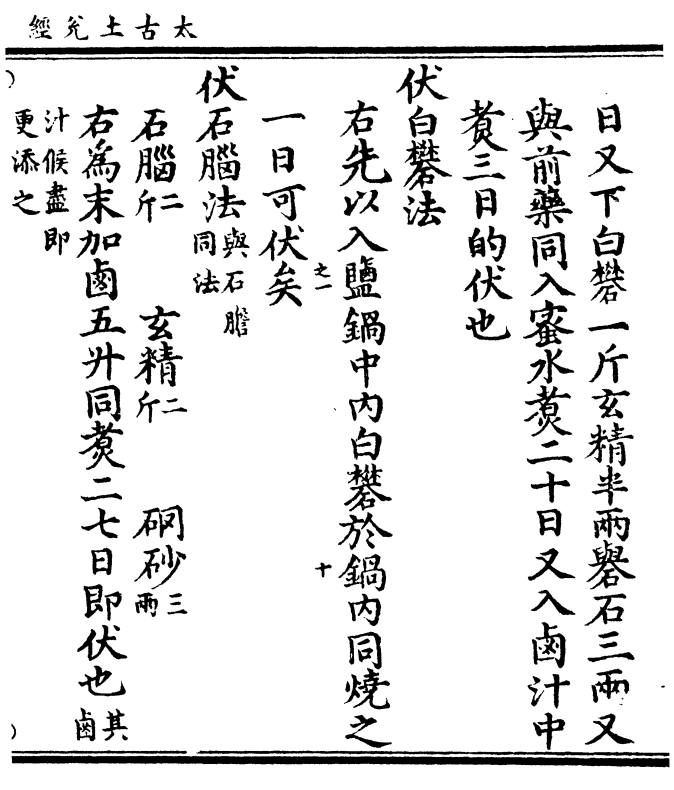 太古土兌經
日又下白礬一斤玄精半兩礜石三兩又
與前藥同入蜜水煑二十日又入鹵汁中
煑三日的伏也
伏白礬法
右先以入鹽鍋中内白礬於鍋内同燒之
之一 十
一日可伏矣
伏石腦法與石膽同法
石腦二斤 玄精二斤 硇砂三兩
右為末加鹵五升同煑二七日即伏也其鹵
汁候盡即更添之